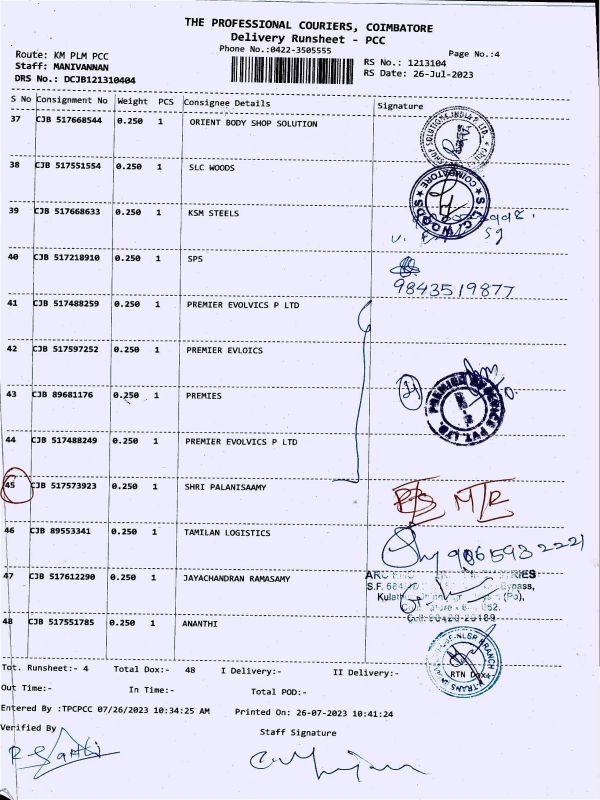 THE PROFESSIONAL COURIERS, COIMBATORE
Delivery Runsheet - PCC
Phone No.:0422-3505555
Page No.:4
Route: KM PLM PCC
Staff: MANIVANNAN
DRS No.: DCJB121310404
RS No.: 1213104
RS Date: 26-Jul-2023
S No Consignment No Weight PCS Consignee Details Signature
37 CJB 517668544 0.250 1 ORIENT BODY SHOP SOLUTION
38 CJB 517551554 0.250 1 SLC WOODS
S.L.C. WOODS ★ COIMBATORE ★
39 CJB 517668633 0.250 1 KSM STEELS
40 CJB 517218910 0.250 1 SPS
9843519877
41 CJB 517488259 0.250 1 PREMIER EVOLVICS P LTD
42 CJB 517597252 0.250 1 PREMIER EVLOICS
43 CJB 89681176 0.250 1 PREMIES
PREMIER EVOLVICS PVT. LTD.
44 CJB 517488249 0.250 1 PREMIER EVOLVICS P LTD
45 CJB 517573923 0.250 1 SHRI PALANISAAMY
46 CJB 89553341 0.250 1 TAMILAN LOGISTICS
47 CJB 517612290 0.250 1 JAYACHANDRAN RAMASAMY
48 CJB 517551785 0.250 1 ANANTHI
Tot. Runsheet:- 4 Total Dox:- 48 I Delivery:- II Delivery:- RTN Dox:-
Out Time:- In Time:- Total POD:-
Entered By :TPCPCC 07/26/2023 10:34:25 AM Printed On: 26-07-2023 10:41:24
Verified By
Staff Signature